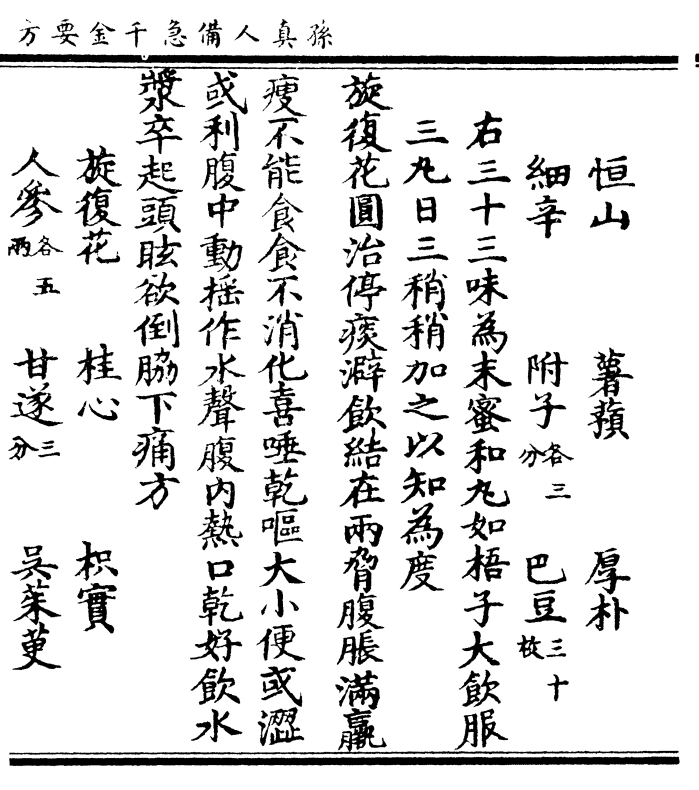 孫真人備急千金要方
恒山 薯蕷 厚朴
細辛 附子各三分 巴豆三十枚
右三十三味為末蜜和丸如梧子大飲服
三丸日三稍稍加之以知為度
旋復花圓治停痰澼飲結在兩脅腹脹滿羸
瘦不能食食不消化喜唾乾嘔大小便或澀
或利腹中動揺作水聲腹內熱口乾好飲水
漿卒起頭眩欲倒脇下痛方
旋復花 桂心 枳實
人參各五兩 甘遂三分 吳茱萸